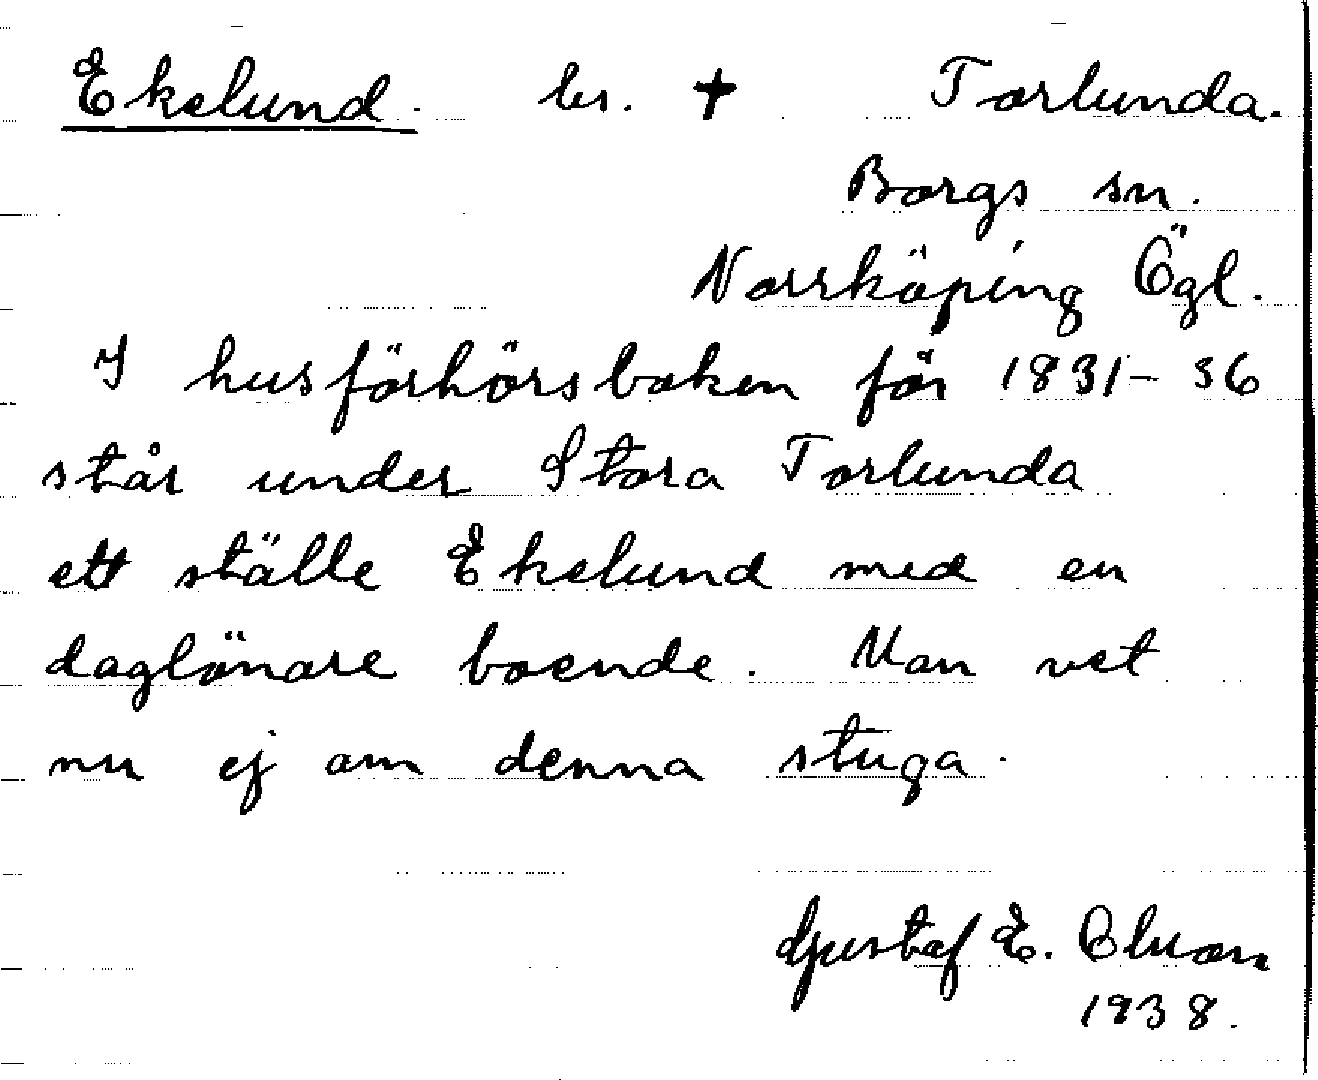 Ekelund. ls. † Torlunda.
Borgs sn.
Norrköping Ögl.
I husförhörsboken för 1831-36
står under Stora Torlunda
ett ställe Ekelund med en
daglönare boende. Man vet
nu ej om denna stuga.
Gustaf E.
1938.